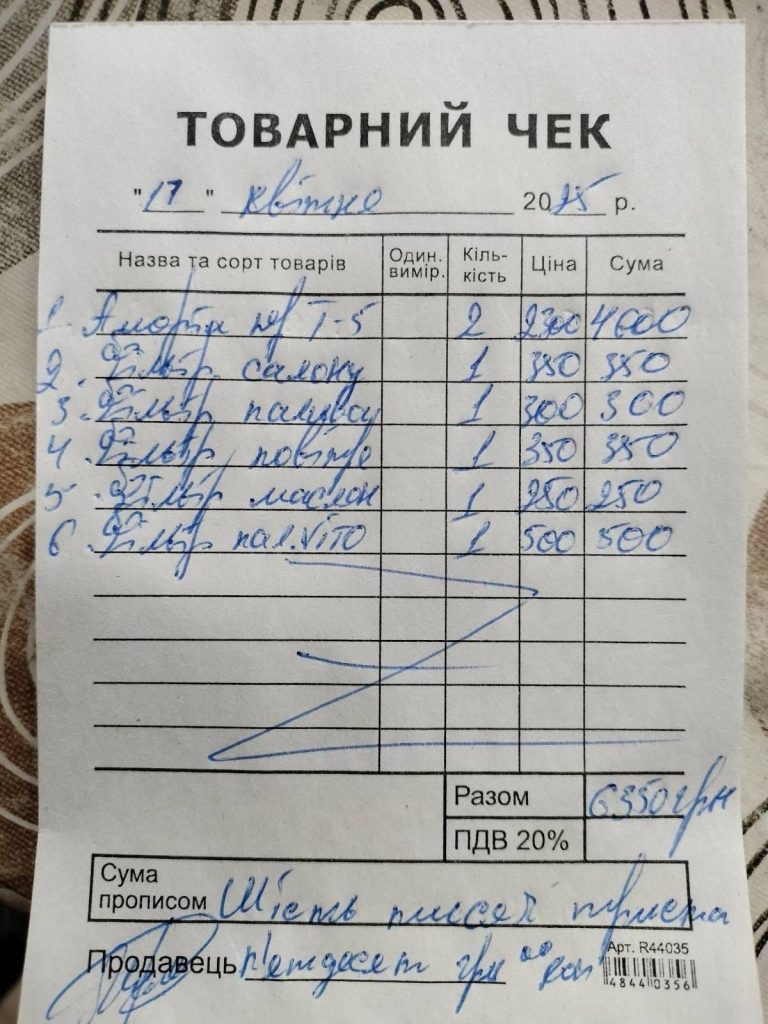 ТОВАРНИЙ ЧЕК
"17" квітня 2025 р.
Назва та сорт товарів Один. вимір. Кіль-кість Ціна Сума
1. Аморти п/ Т-5 2 2300 4600
2. Фільтр салону 1 350 350
3. Фільтр паливн 1 300 300
4. Фільтр повітря 1 350 350
5. Фільтр маслян 1 250 250
6. Фільтр пал. VITO 1 500 500
Разом 6350 грн
ПДВ 20%
Сума прописом Шість тисяч триста
Продавець п'ятдесят грн 00 коп
Арт. R44035
4844 0356